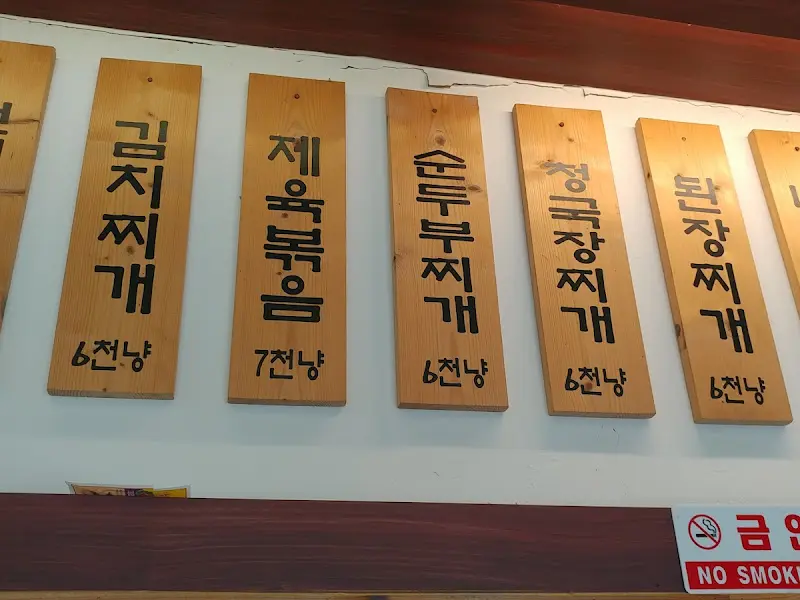 김치찌개
6천냥
제육볶음
7천냥
순두부찌개
6천냥
청국장찌개
6천냥
된장찌개
6천냥
금
NO SMOKI